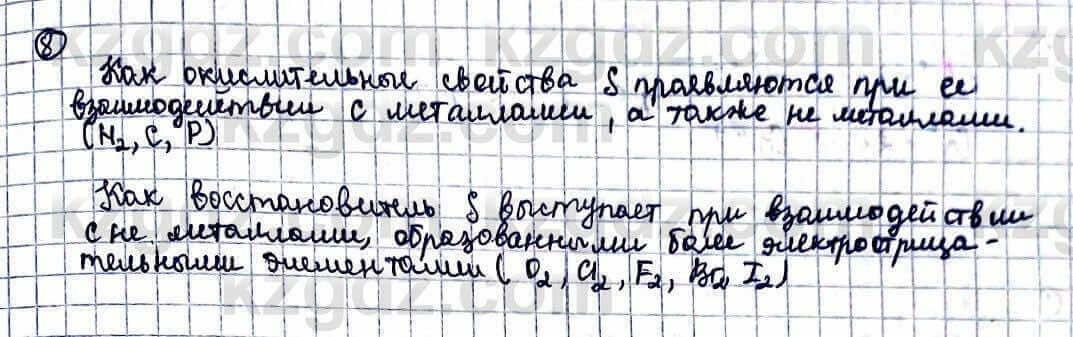 8
Как окислительные свойства S проявляются при ее
взаимодействии с металлами, а также не металлами.
(H₂, C, P)
Как восстановитель S выступает при взаимодействии
с не металлами, образованными более электроотрица-
тельными элементами ( O₂, Cl₂, F₂, Br₂ I₂)
kzgdz.com